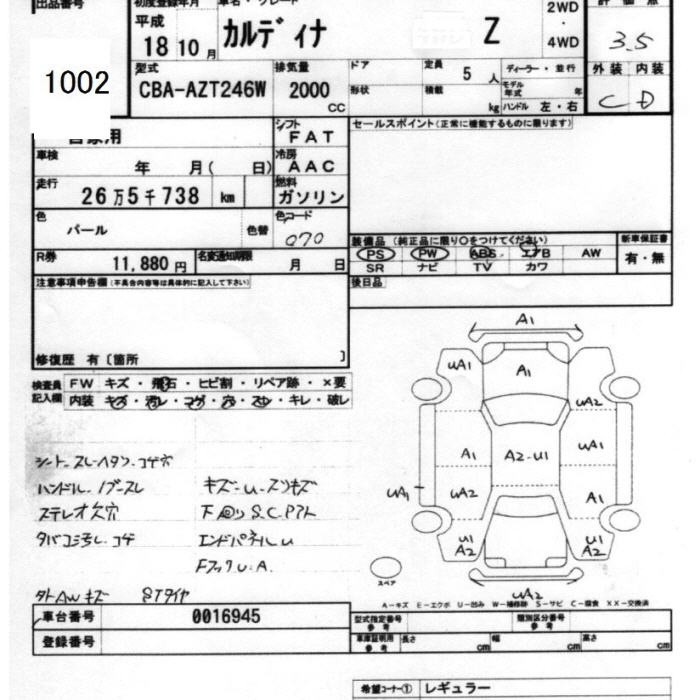 出品番号 初度登録年月 車名・グレード 2WD 評価点
平成 カルディナ Z ・ 3.5
18 10月 4WD
1002 型式 排気量 ドア 定員 5人 ディーラー・並行 外装 内装
CBA-AZT246W 2000 CC 形状 積載 kg モデル年式 年 C D
ハンドル 左・右
自家用 シフト FAT セールスポイント(正常に機能するものに限ります)
車検 年 月( 日) 冷房 AAC
走行 26万5千738 km 燃料 ガソリン
色 パール 色替 色コード 070
装備品 (純正品に限り○をつけてください) 新車保証書
R券 11,880円 名変通知期限 月 日 PS PW ABS エアB AW 有・無
SR ナビ TV カワ
注意事項申告欄(不具合内容等は具体的に記入して下さい) 後日品
修復歴 有〔箇所 〕
検査員記入欄 FW キズ・飛石・ヒビ割・リペア跡・×要
内装 キズ・汚レ・コゲ・穴・スレ・キレ・破レ
A1
uA1 A1 uA2
A1 A2-u1 uA1
uA1 uA2 A1
u1 A2 u1 A2
uA2
スペア
シート.スレ.ヘタリ.コゲ穴
ハンドル.ノブ.スレ キズ-u-スリキズ
ステレオ欠穴 下回りS.C.Pアト
タバコ臭し.コゲ エンドパネルu
FフックU.A.
タトAWキズ STタイヤ
A-キズ E-エクボ U-凹み W-補修跡 S-サビ C-腐食 XX-交換済
車台番号 0016945 型式指定番号 参考 類別区分番号 参考
登録番号 車庫証明用 参考 長さ cm 幅 cm 高さ cm
希望コーナー① レギュラー